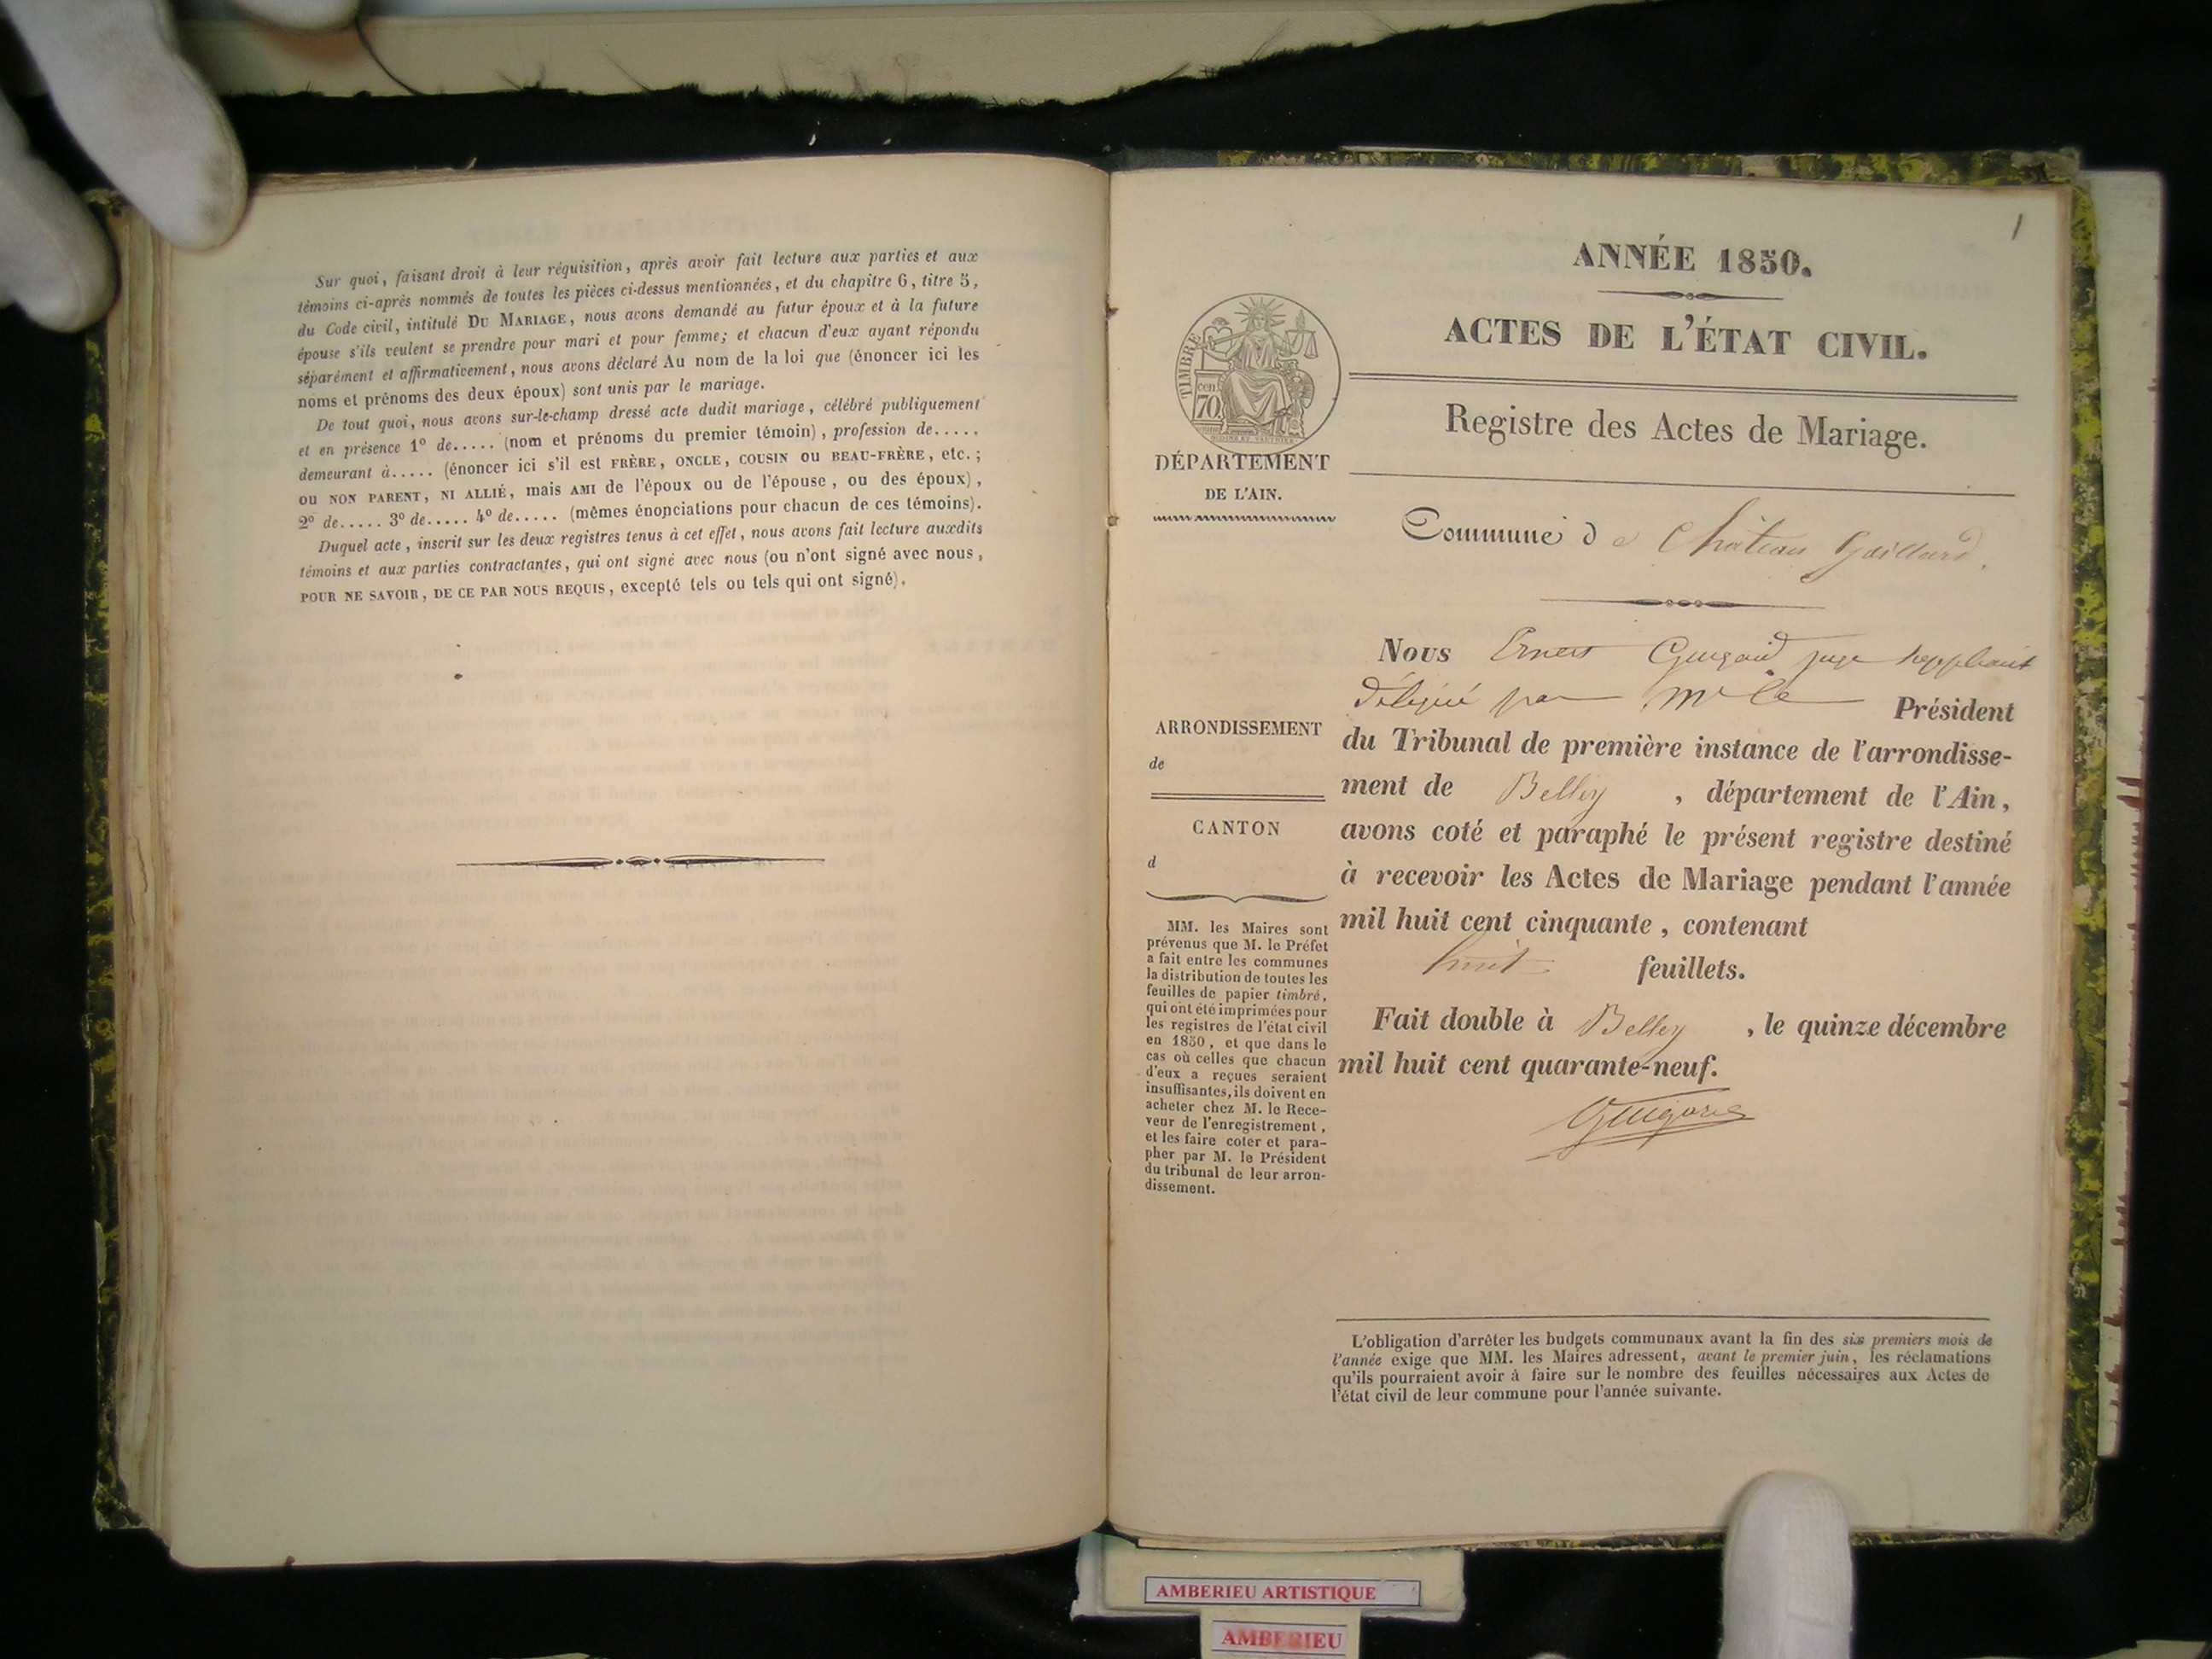 Sur quoi, faisant droit à leur réquisition, après avoir fait lecture aux parties et aux
témoins ci-après nommés de toutes les pièces ci-dessus mentionnées, et du chapitre 6, titre 5,
du Code civil, intitulé DU MARIAGE, nous avons demandé au futur époux et à la future
épouse s'ils veulent se prendre pour mari et pour femme; et chacun d'eux ayant répondu
séparément et affirmativement, nous avons déclaré Au nom de la loi que (énoncer ici les
noms et prénoms des deux époux) sont unis par le mariage.
De tout quoi, nous avons sur-le-champ dressé acte dudit mariage, célébré publiquement
et en présence 1º de..... (nom et prénoms du premier témoin), profession de.....
demeurant à..... (énoncer ici s'il est FRÈRE, ONCLE, COUSIN ou BEAU-FRÈRE, etc.;
ou NON PARENT, NI ALLIÉ, mais AMI de l'époux ou de l'épouse, ou des époux),
2º de..... 3º de..... 4º de..... (mêmes énonciations pour chacun de ces témoins).
Duquel acte, inscrit sur les deux registres tenus à cet effet, nous avons fait lecture auxdits
témoins et aux parties contractantes, qui ont signé avec nous (ou n'ont signé avec nous,
POUR NE SAVOIR, DE CE PAR NOUS REQUIS, excepté tels ou tels qui ont signé).
1
ANNÉE 1850.
ACTES DE L'ÉTAT CIVIL.
Registre des Actes de Mariage.
TIMBRE
cen
70.
DÉPARTEMENT
DE L'AIN.
Commune de Château Gaillard.
Nous Ernest juge suppléant
délégué par Mr le Président
du Tribunal de première instance de l'arrondisse-
ment de Belley, département de l'Ain,
avons coté et paraphé le présent registre destiné
à recevoir les Actes de Mariage pendant l'année
mil huit cent cinquante, contenant
huit feuillets.
Fait double à Belley, le quinze décembre
mil huit cent quarante-neuf.
ARRONDISSEMENT
de
CANTON
d
MM. les Maires sont
prévenus que M. le Préfet
a fait entre les communes
la distribution de toutes les
feuilles de papier timbré,
qui ont été imprimées pour
les registres de l'état civil
en 1850, et que dans le
cas où celles que chacun
d'eux a reçues seraient
insuffisantes, ils doivent en
acheter chez M. le Rece-
veur de l'enregistrement,
et les faire coter et para-
pher par M. le Président
du tribunal de leur arron-
dissement.
L'obligation d'arrêter les budgets communaux avant la fin des six premiers mois de
l'année exige que MM. les Maires adressent, avant le premier juin, les réclamations
qu'ils pourraient avoir à faire sur le nombre des feuilles nécessaires aux Actes de
l'état civil de leur commune pour l'année suivante.
AMBERIEU ARTISTIQUE
AMBERIEU